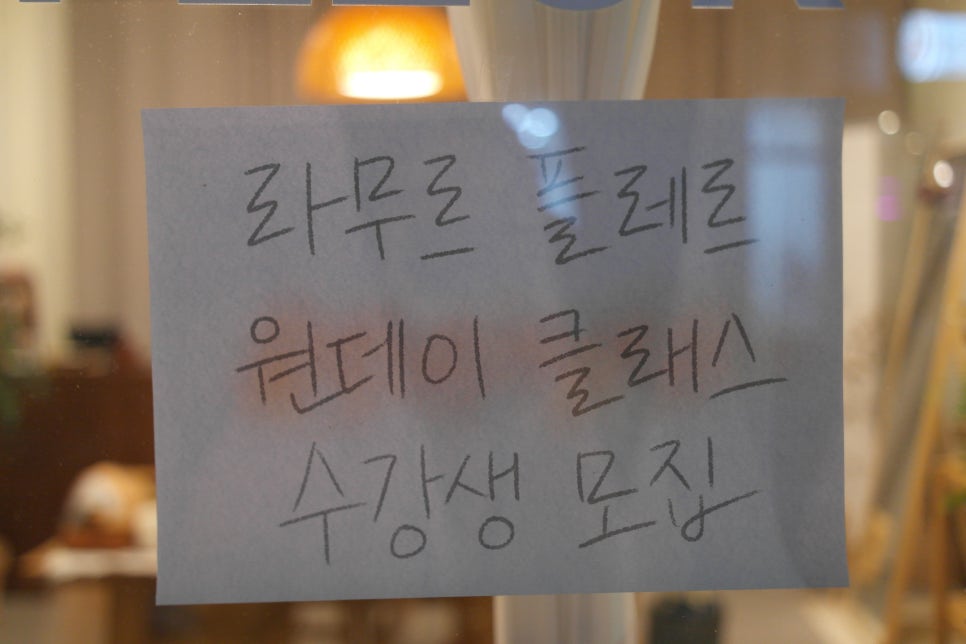 라무르 플레르
원데이 클래스
수강생 모집